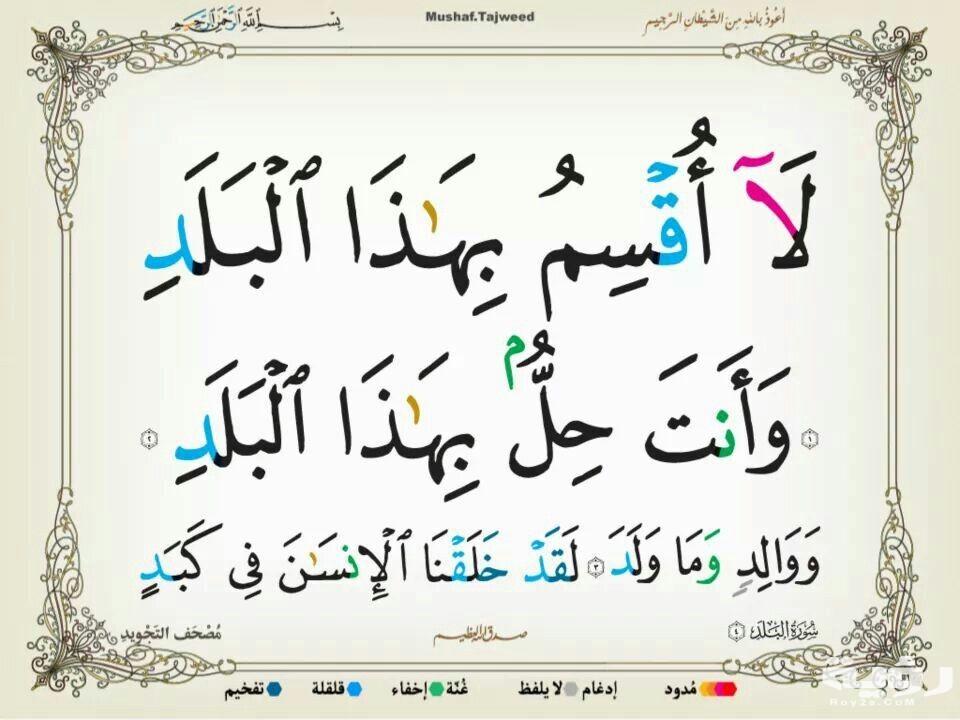 أعوذ بالله من الشيطان الرجيم
Mushaf.Tajweed
بِسْمِ ٱللَّهِ ٱلرَّحْمَٰنِ ٱلرَّحِيمِ
لَآ أُقْسِمُ بِهَٰذَا ٱلْبَلَدِ
۝١ وَأَنتَ حِلٌّۢ بِهَٰذَا ٱلْبَلَدِ ۝٢
وَوَالِدٍ وَمَا وَلَدَ ۝٣ لَقَدْ خَلَقْنَا ٱلْإِنسَٰنَ فِى كَبَدٍ
سُورَةُ البَلَد ۝٤
صدق الله العظيم
مُصْحَف التَجْويد
مُدود إدغام لا يلفظ غُنّة إخفاء قلقلة تفخيم
رؤية
Roy2a.CoM